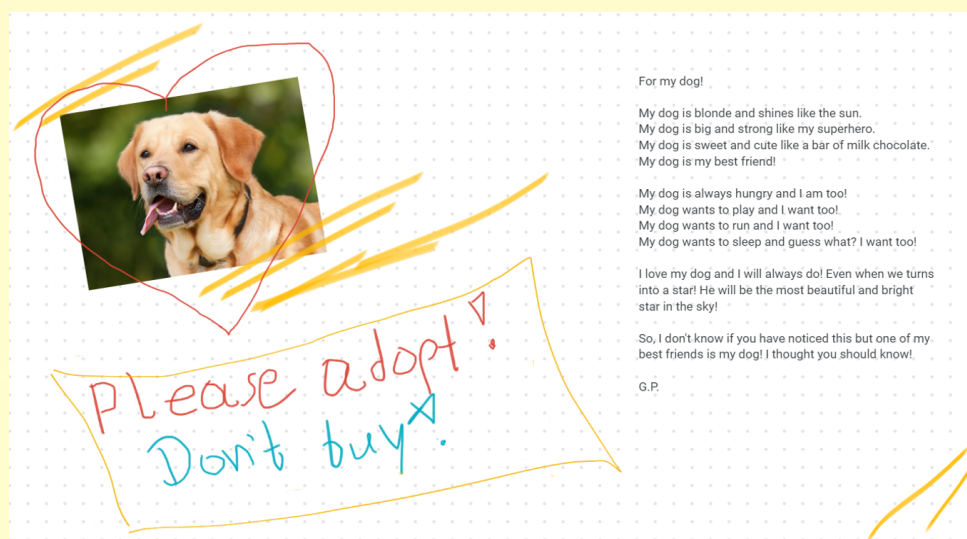 For my dog!
My dog is blonde and shines like the sun.
My dog is big and strong like my superhero.
My dog is sweet and cute like a bar of milk chocolate.
My dog is my best friend!
My dog is always hungry and I am too!
My dog wants to play and I want too!
My dog wants to run and I want too!
My dog wants to sleep and guess what? I want too!
I love my dog and I will always do! Even when we turns
into a star! He will be the most beautiful and bright
star in the sky!
So, I don't know if you have noticed this but one of my
best friends is my dog! I thought you should know!
G.P.
Please adopt!
Don't buy!